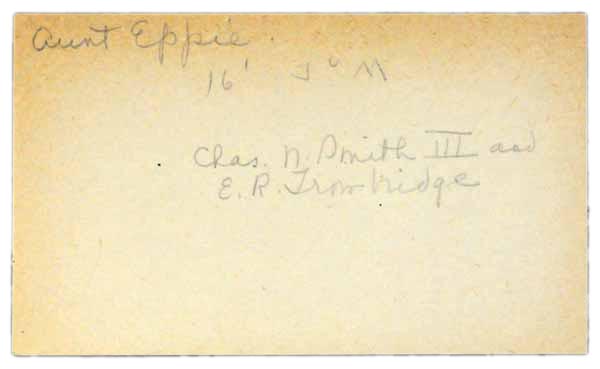 Aunt Eppie.
16'
Chas. N. Smith III and
E. R. Trowbridge